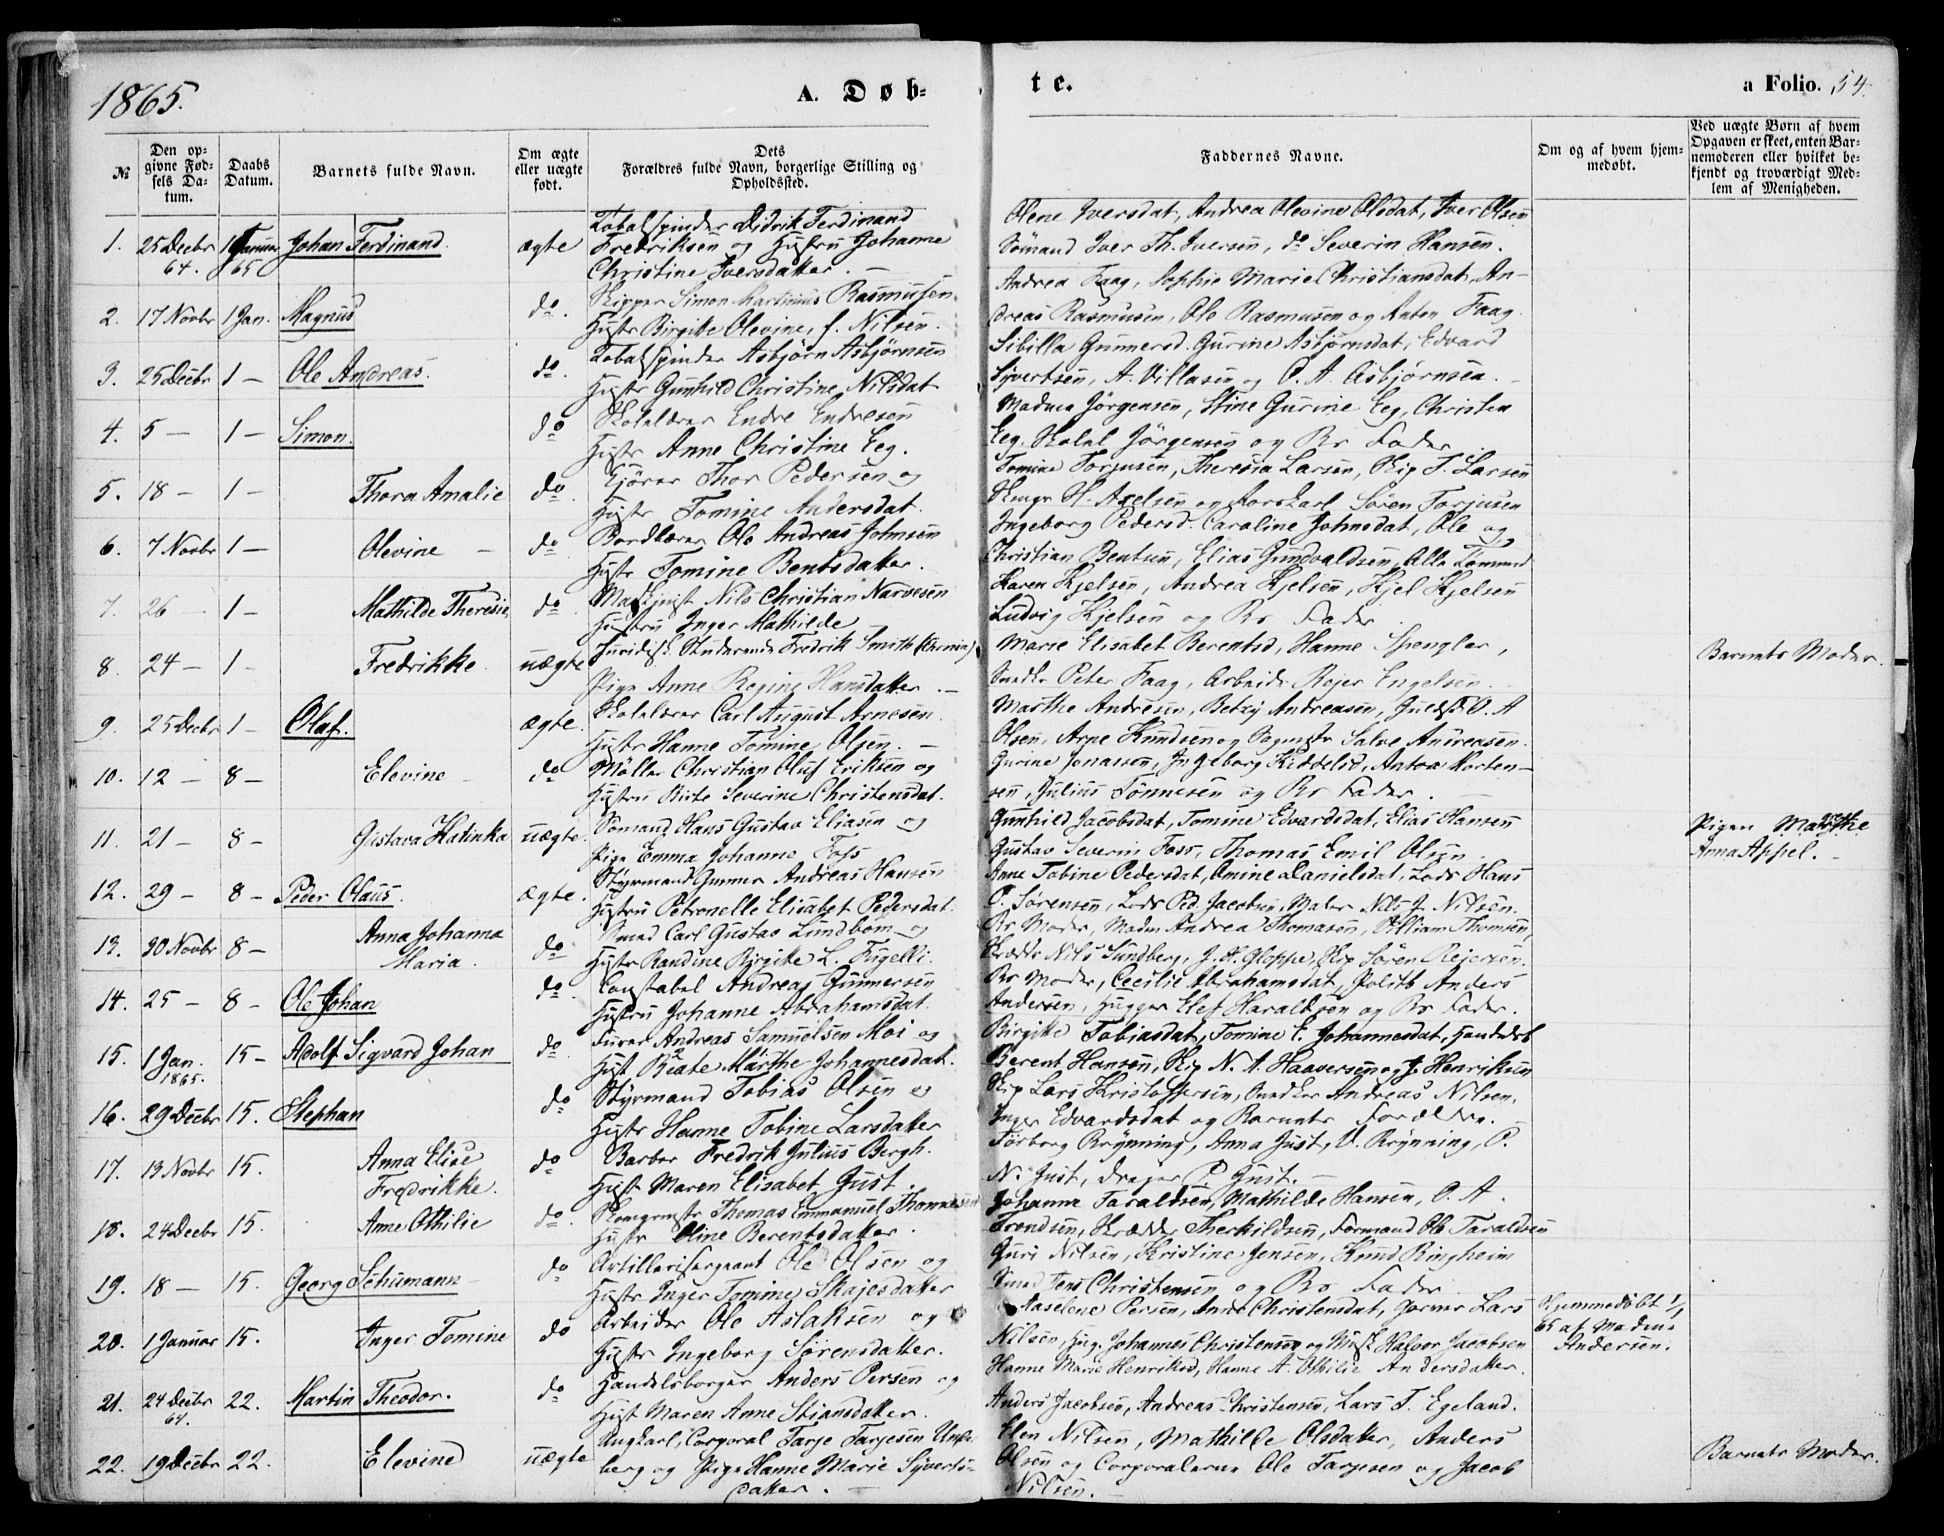 1865.
A. Døb-
te.
a Folio. 54.
№
Den opgivne Fødsels Datum.
Daabs Datum.
Barnets fulde Navn.
Om ægte eller uægte født.
Dets Forældres fulde Navn, borgerlige Stilling og Opholdssted.
Faddernes Navne.
Om og af hvem hjemmedøbt.
Ved uægte Børn af hvem Opgaven er skeet, enten Barnemoderen eller hvilket bekjendt og troværdigt Medlem af Menigheden.
1. 25 Decbr 64. 1 Januar 65 Johan Ferdinand. ægte
Tobakspinder Didrik Ferdinand
Fredriksen og Hustru Johanne
Christine Iversdatter. —
Olene Iversdat, Andrea Olevine Olsdat, Iver Olsen
Sömand Iver Th. Iversen, do Severin Hansen.
2. 17 Novbr 1 Jan. Magnus do.
Skipper Simon Martinius Rasmusen
Hustr Birgitte Olevine, f. Nilsen.
Andrea Faag, Sophie Marie Christiansdat, An-
dreas Rasmusen, Ole Rasmusen og Anton Faag.
3. 25 Decbr 1 — Ole Andreas. do.
Tobakspinder Asbjörn Asbjörnsen
Hustr Gunhild Christine Nilsdat
Sibilla Gunnersd. Gurine Asbjörnsdat, Edvard
Syvertsen, A. Villasen og O. A. Asbjørnsen. —
4. 5 — 1 — Simon. do
Skolelærer Endre Endresen
Hustr Anne Christine Eeg.
Madam Jörgensen, Stine Gurine Eeg, Christen
Eeg, Jörgensen og Bs Fader.
5. 18 — 1 — Thora Amalie do.
Kjörer Thor Pedersen og
Hustr Tomine Andersdat.
Tomine Torjusen, Theresia Larsen, Skip T. Larsen
H. Axelsen og Aarskarl Sören Torjusen
6. 7 Novbr 1 — Olevine — do.
Bordlærer Ole Andreas Johnsen
Hustr Tomine Bentsdatter.
Ingeborg Pedersd. Caroline Johnsdat, Ole og
Christian Bentsen, Elias Gundvaldsen, Alle Tömmd
7. 26 — 1 — Mathilde Theresie, do.
Maskinist Nils Christian Narvesen
Hustru Inger Mathilde —
Karen Kjelsen, Andrea Kjelsen, Kjel Kjelsen
Ludvig Kjelsen og Bs Fader.
8. 24 — 1 — Fredrikke. uægte
Juridisk Studerende Fredrik Smith (Chria)
Pige Anne Regine Hansdatter. —
Marie Elisabet Berentsd, Hanne Spengler,
Snedkr Peter Faag, Arbeidr Rejer Engelsen.
Barnets Moder.
9. 25 Decbr 1 — Olaf. ægte.
Skolelærer Carl August Arnesen.
Hustr Hanne Tomine Olsen. —
Marthe Andresen, Betzy Andreasen, Guldsd O. A
Olsen, Arne Knudsen og Salve Andreasen.
10. 12 — 8 — Elevine — do
Møller Christian Oluf Eriksen og
Hustru Birte Severine Christensdat.
Gurine Jonassen, Ingeborg Kiddelsd, Anton Morten-
sen, Julius Tönnesen og Bs Fader. —
11. 21 — 8 — Gustava Hatinka uægte.
Sömand Hans Gustav Eliasen og
Pige Emma Johanne Foss
Gunhild Jacobsdat, Tomine Edvardsdat, Elias Hansen
Gustav Severin Foss, Thomas Emil Olsen.
Pigen Marthe
Anna Appel. —
12. 29 — 8 — Peder Claus. ægte.
Styrmand Gunner Andreas Hansen
Hustru Petronelle Elisabet Pedersdat.
Anne Tobine Pedersdat, Omine Danielsdat, Lods Hans
P. Sörensen, Lods Ped. Jacobsen, Maler Nils J. Nilsen.
13. 30 Novbr 8 — Anna Johanna Maria. do
Smed Carl Gustav Lundbom og
Hustr Randine Birgitte L. Fugelli.
Bs Moder, Madm Andrea Thomasen, William Thomsen,
Skrædr Nils Sundberg, J. H. Gleppe, Skip Sören Rejersen.
14. 25 — 8 — Ole Johan do.
Constabel Andreas Gunnersen
Hustru Johanne Abrahamsdat.
Bs Moder, Cecilie Abrahamsdat, Politb Anders
Andersen, Hugger Elef Haraldsen og Bs Fader.
15. 1 Jan. 1865. 15 — Adolf Sigvard Johan do.
Furer Andreas Samuelsen Moi og
Hust Beate Marthe Johannesdat.
Birgitte Tobiasdat, Tomine E. Johannesdat, Handelsb
Berent Hansen, Skip N. A. Haaversen og J. Henriksen
16. 29 Decbr 15. Stephan do
Styrmand Tobias Olsen og
Hustr Hanne Tobine Larsdatter
Skip Lars Kristoffersen, Snedker Andreas Nilsen.
Inger Edvardsdat og Barnets Forældre. —
17. 13 Novbr 15. Anna Elise Fredrikke. do
Barber Fredrik Julius Bergh.
Hust Maren Elisabet Gust.
Törborg Brynning, Anna Just, O. Brynning, P.
N. Just, Drager P. Gust. —
18. 24 Decbr 15. Anne Othilie do.
Skomgrmstr Thomas Emmanuel Thommesen
Hustr Oline Berentsdatter.
Johanna Taraldsen, Mathilde Hansen, O. A.
Trondsen, Skrædr Therkildsen, Formand Ole Taraldsen
19. 18 — 15. Georg Schumann — do
Artillerisergeant Ole Olsen og
Hustr Inger Tomine Skajesdatter
Guri Nilsen, Kristine Jensen, Knud Ringheim
Smed Jens Christensen og Bs Fader.
20. 1 Januar 15. Inger Tomine do
Arbeider Ole Aslaksen og
Hustr Ingeborg Sörensdatter.
Aaselene Persen, Anne Christensdat, Lars
Nilsen, Hug. Johannes Christensen og Halvor Jacobsen
Hjemmedöbt 1/1
65 af Madam
Andersen.
21. 24 Decbr 64. 22. Martin Theodor. do
Handelsborger Anders Persen og
Hust Maren Anne Stiansdatter.
Hanne Marie Henriksd, Hanne A. Othilie Andersdatter.
Anders Jacobsen, Andreas Christensen, Lars T. Egeland.
22. 19 Decbr 22. Elevine uægte
Ungkarl, Corporal Tarje Tarjesen
berg og Pige Hanne Marie Syverts-
datter. —
Elen Nilsen, Mathilde Olsdatter, Anders
Olsen og Corporalerne Ole Tarjesen og Jacob
Nilsen. —
Barnets Moder.